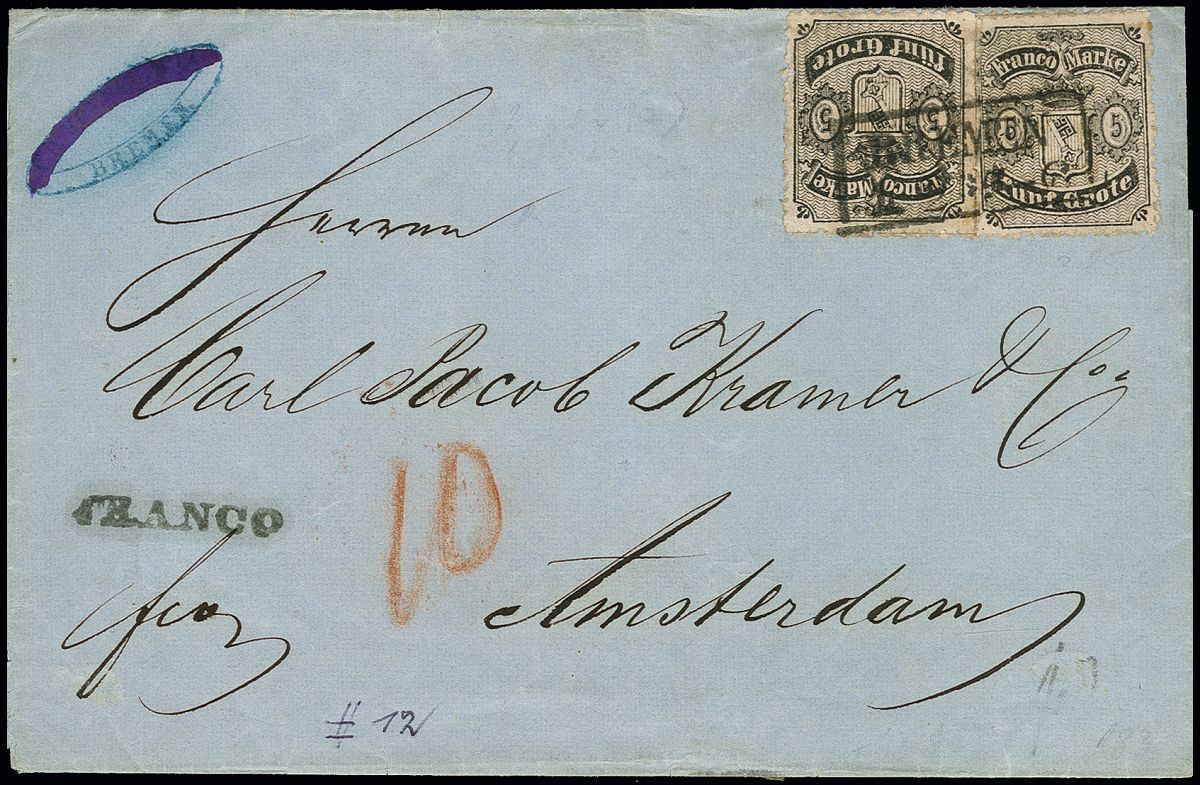 BREMEN
fünf Grote
5 5
Franco Marke
Franco Marke
5 5
fünf Grote
BREMEN
Herren
Carl Jacob Kramer & Co=
FRANCO
10
fco
Amsterdam
# 12